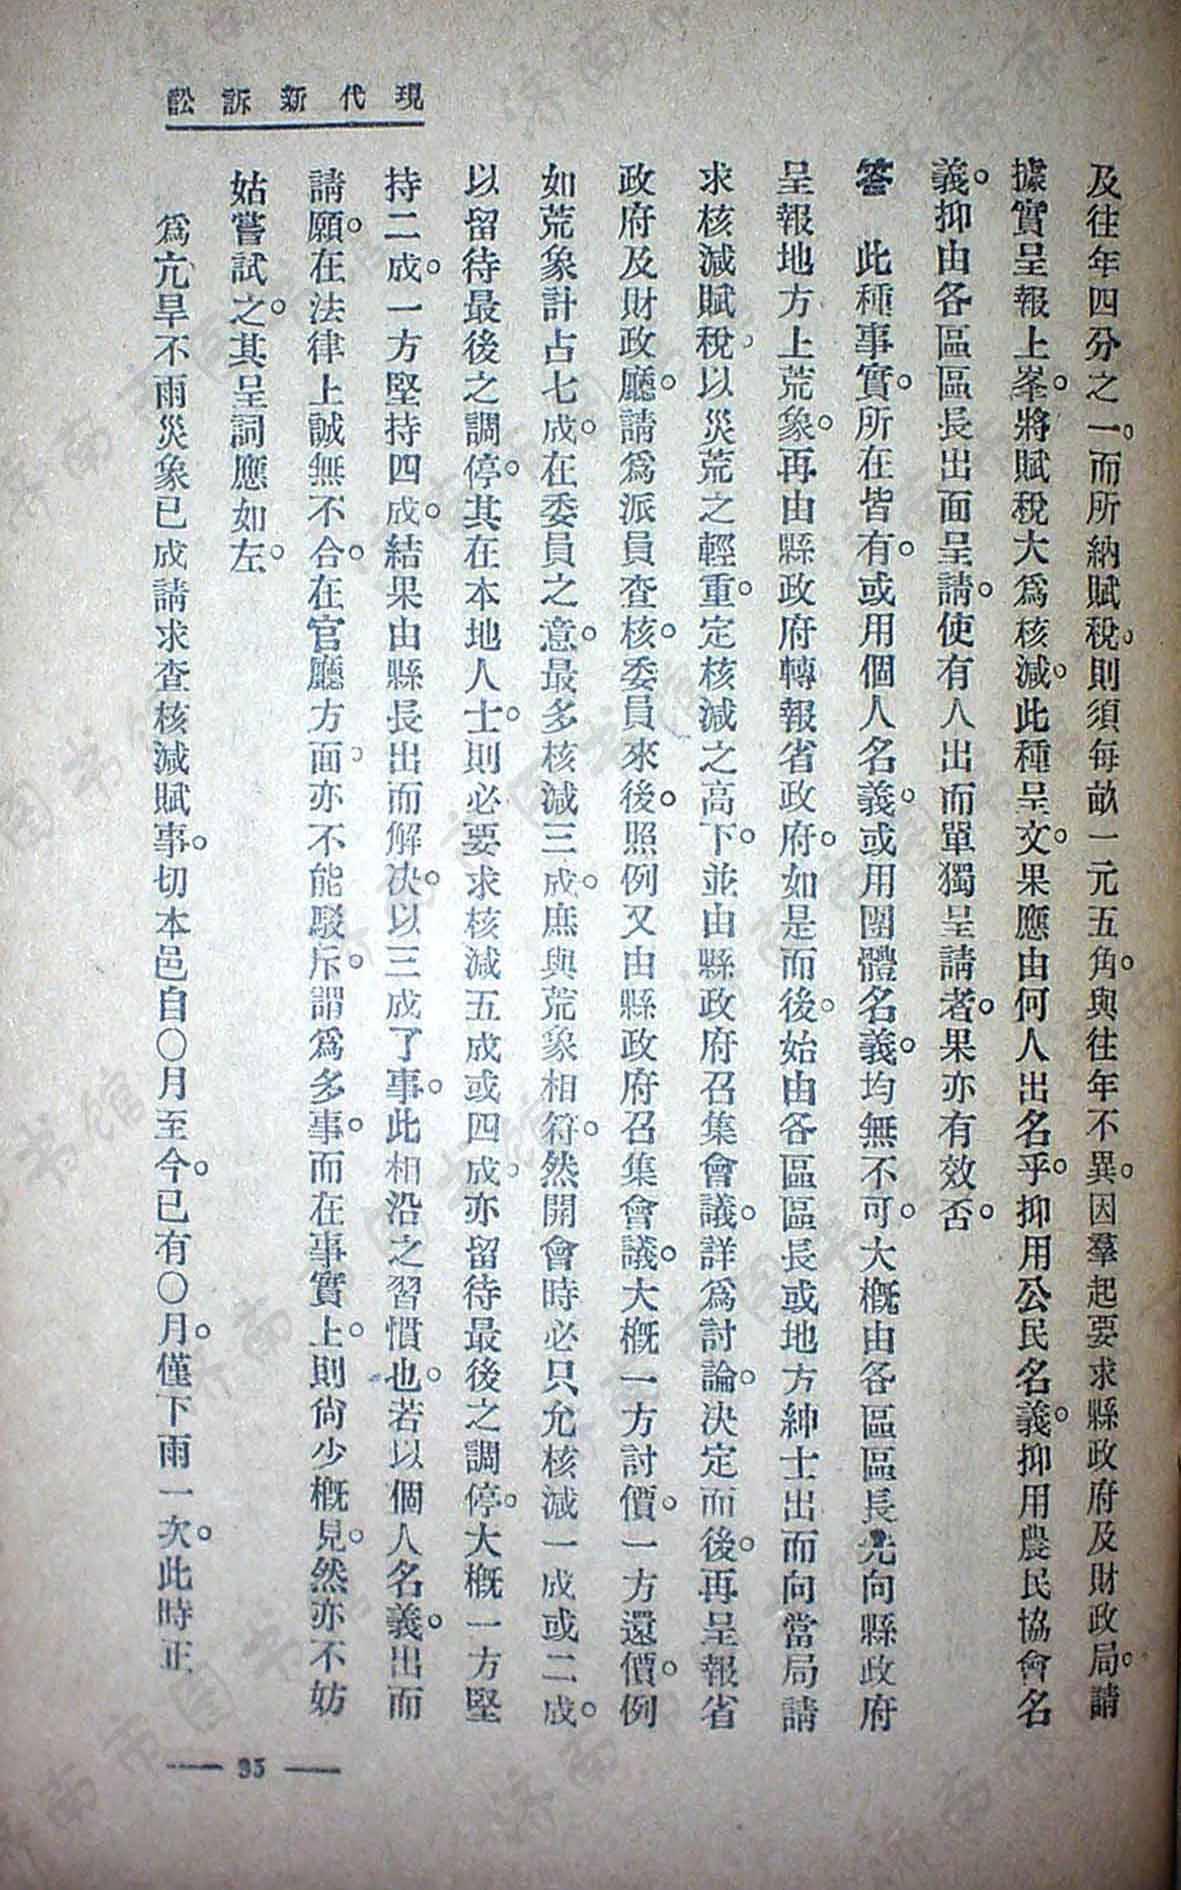 現代新訴訟
及往年四分之一。而所納賦稅。則須每畝一元五角。與往年不異。因羣起要求縣政府及財政局。請
據實呈報上峯。將賦稅大爲核減。此種呈文。果應由何人出名乎。抑用公民名義。抑用農民協會名
義。抑由各區區長出面呈請。使有人出而單獨呈請者。果亦有效否。
答　此種事實。所在皆有。或用個人名義。或用團體名義。均無不可。大概由各區區長先向縣政府
呈報地方上荒象。再由縣政府轉報省政府。如是而後。始由各區區長或地方紳士出而向當局請
求核減賦稅。以災荒之輕重。定核減之高下。並由縣政府召集會議。詳爲討論。決定而後。再呈報省
政府及財政廳。請爲派員查核。委員來後。照例又由縣政府召集會議。大概一方討價。一方還價。例
如荒象計占七成。在委員之意。最多核減三成。庶與荒象相符。然開會時必只允核減一成或二成。
以留待最後之調停。其在本地人士。則必要求核減五成或四成。亦留待最後之調停。大概一方堅
持二成。一方堅持四成。結果由縣長出而解決。以三成了事。此相沿之習慣也。若以個人名義。出而
請願。在法律上誠無不合。在官廳方面。亦不能駁斥。謂爲多事。而在事實上。則尙少概見。然亦不妨
姑嘗試之。其呈詞應如左。
爲亢旱不雨災象已成請求查核減賦事。切本邑自〇月至今。已有〇月。僅下雨一次。此時正
— 95 —
济南市图书馆